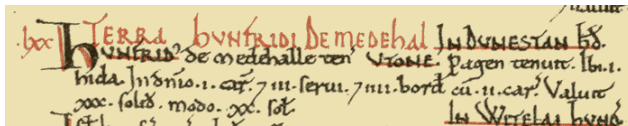 lxx TERRA hVNFRIDI DE MEDEhAL IN DVNESTAN hĐ.
hVNFRID' de medehalle ten' VTONE. Pagen tenuit. Ibi.i.
hida. In dn̄io.i. car̄. ⁊ iii. serui. ⁊ iiii. bord̄ cū.ii. car̄. Valuit
xxx. solid̄. modo. xx. sol̄.
IN WITELAI hVND